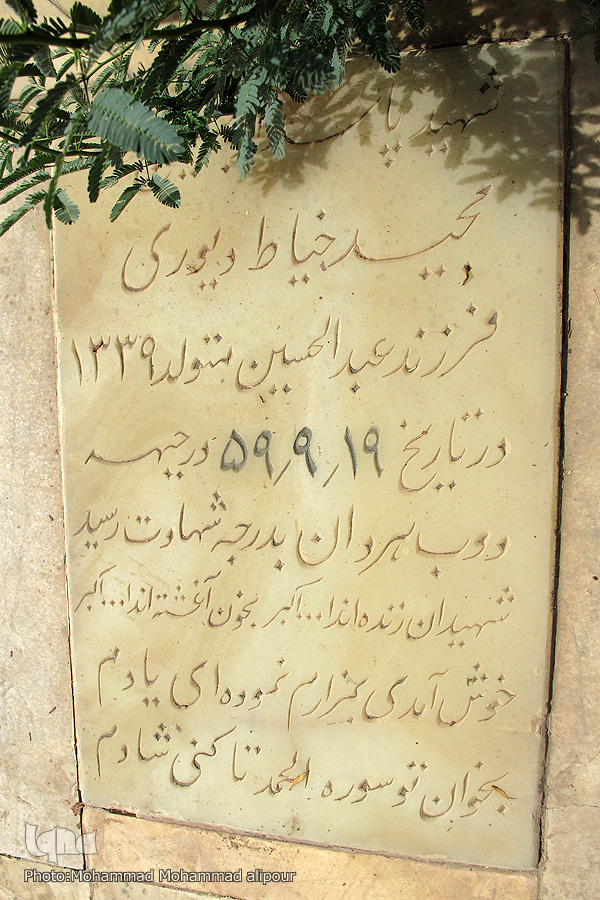 شهید پا
مجید خیاط دیوری
فرزند عبدالحسین متولد ۱۳۳۹
در تاریخ ۱۹٫۹٫۵۹ در جبهه
دوب هردان بدرجه شهادت رسید
شهیدان زنده اند ا... اکبر بخون آغشته اند ا... اکبر
خوش آمدی بمزارم نموده ای یادم
بخوان تو سوره الحمد تا کنی شادم
iqna
Photo:Mohammad Mohammad alipour